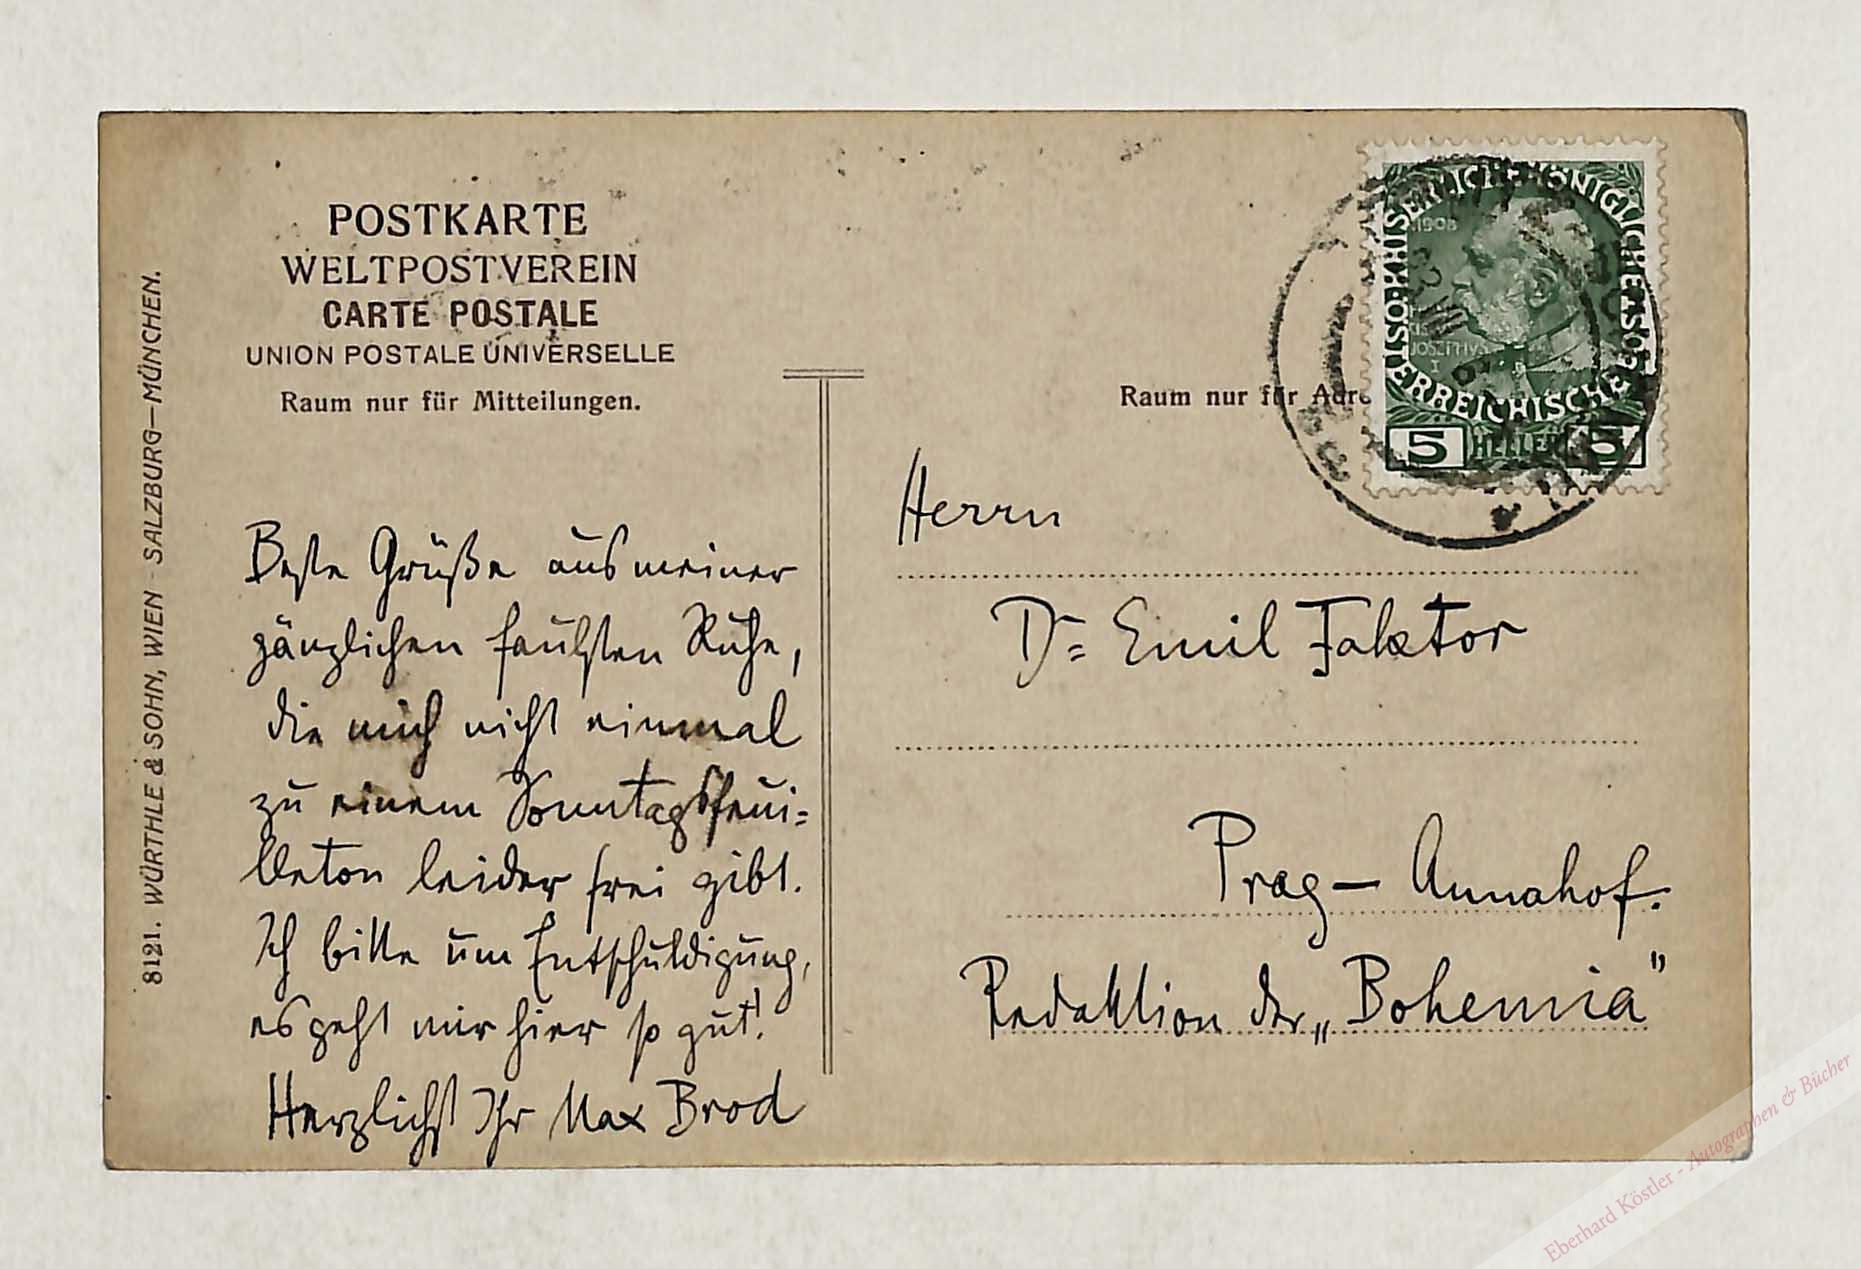 POSTKARTE
WELTPOSTVEREIN
CARTE POSTALE
UNION POSTALE UNIVERSELLE
Raum nur für Mitteilungen.
8121. WÜRTHLE & SOHN, WIEN - SALZBURG—MÜNCHEN.
Beste Grüße aus meiner
gänzlichen faulsten Ruhe,
die mich nicht einmal
zu einem Sonntagsfeui=
lleton leider frei gibt.
Ich bitte um Entschuldigung,
es geht mir hier so gut!
Herzlichst Ihr Max Brod
Raum nur für Adre
KAISERLICHE KÖNIGLICHE
ÖSTERREICHISCHE POST
1908
5 HELLER 5
Herrn
Dr Emil Faktor
Prag— Annahof.
Redaktion der „Bohemia"
Eberhard Köstler - Autographen & Bücher